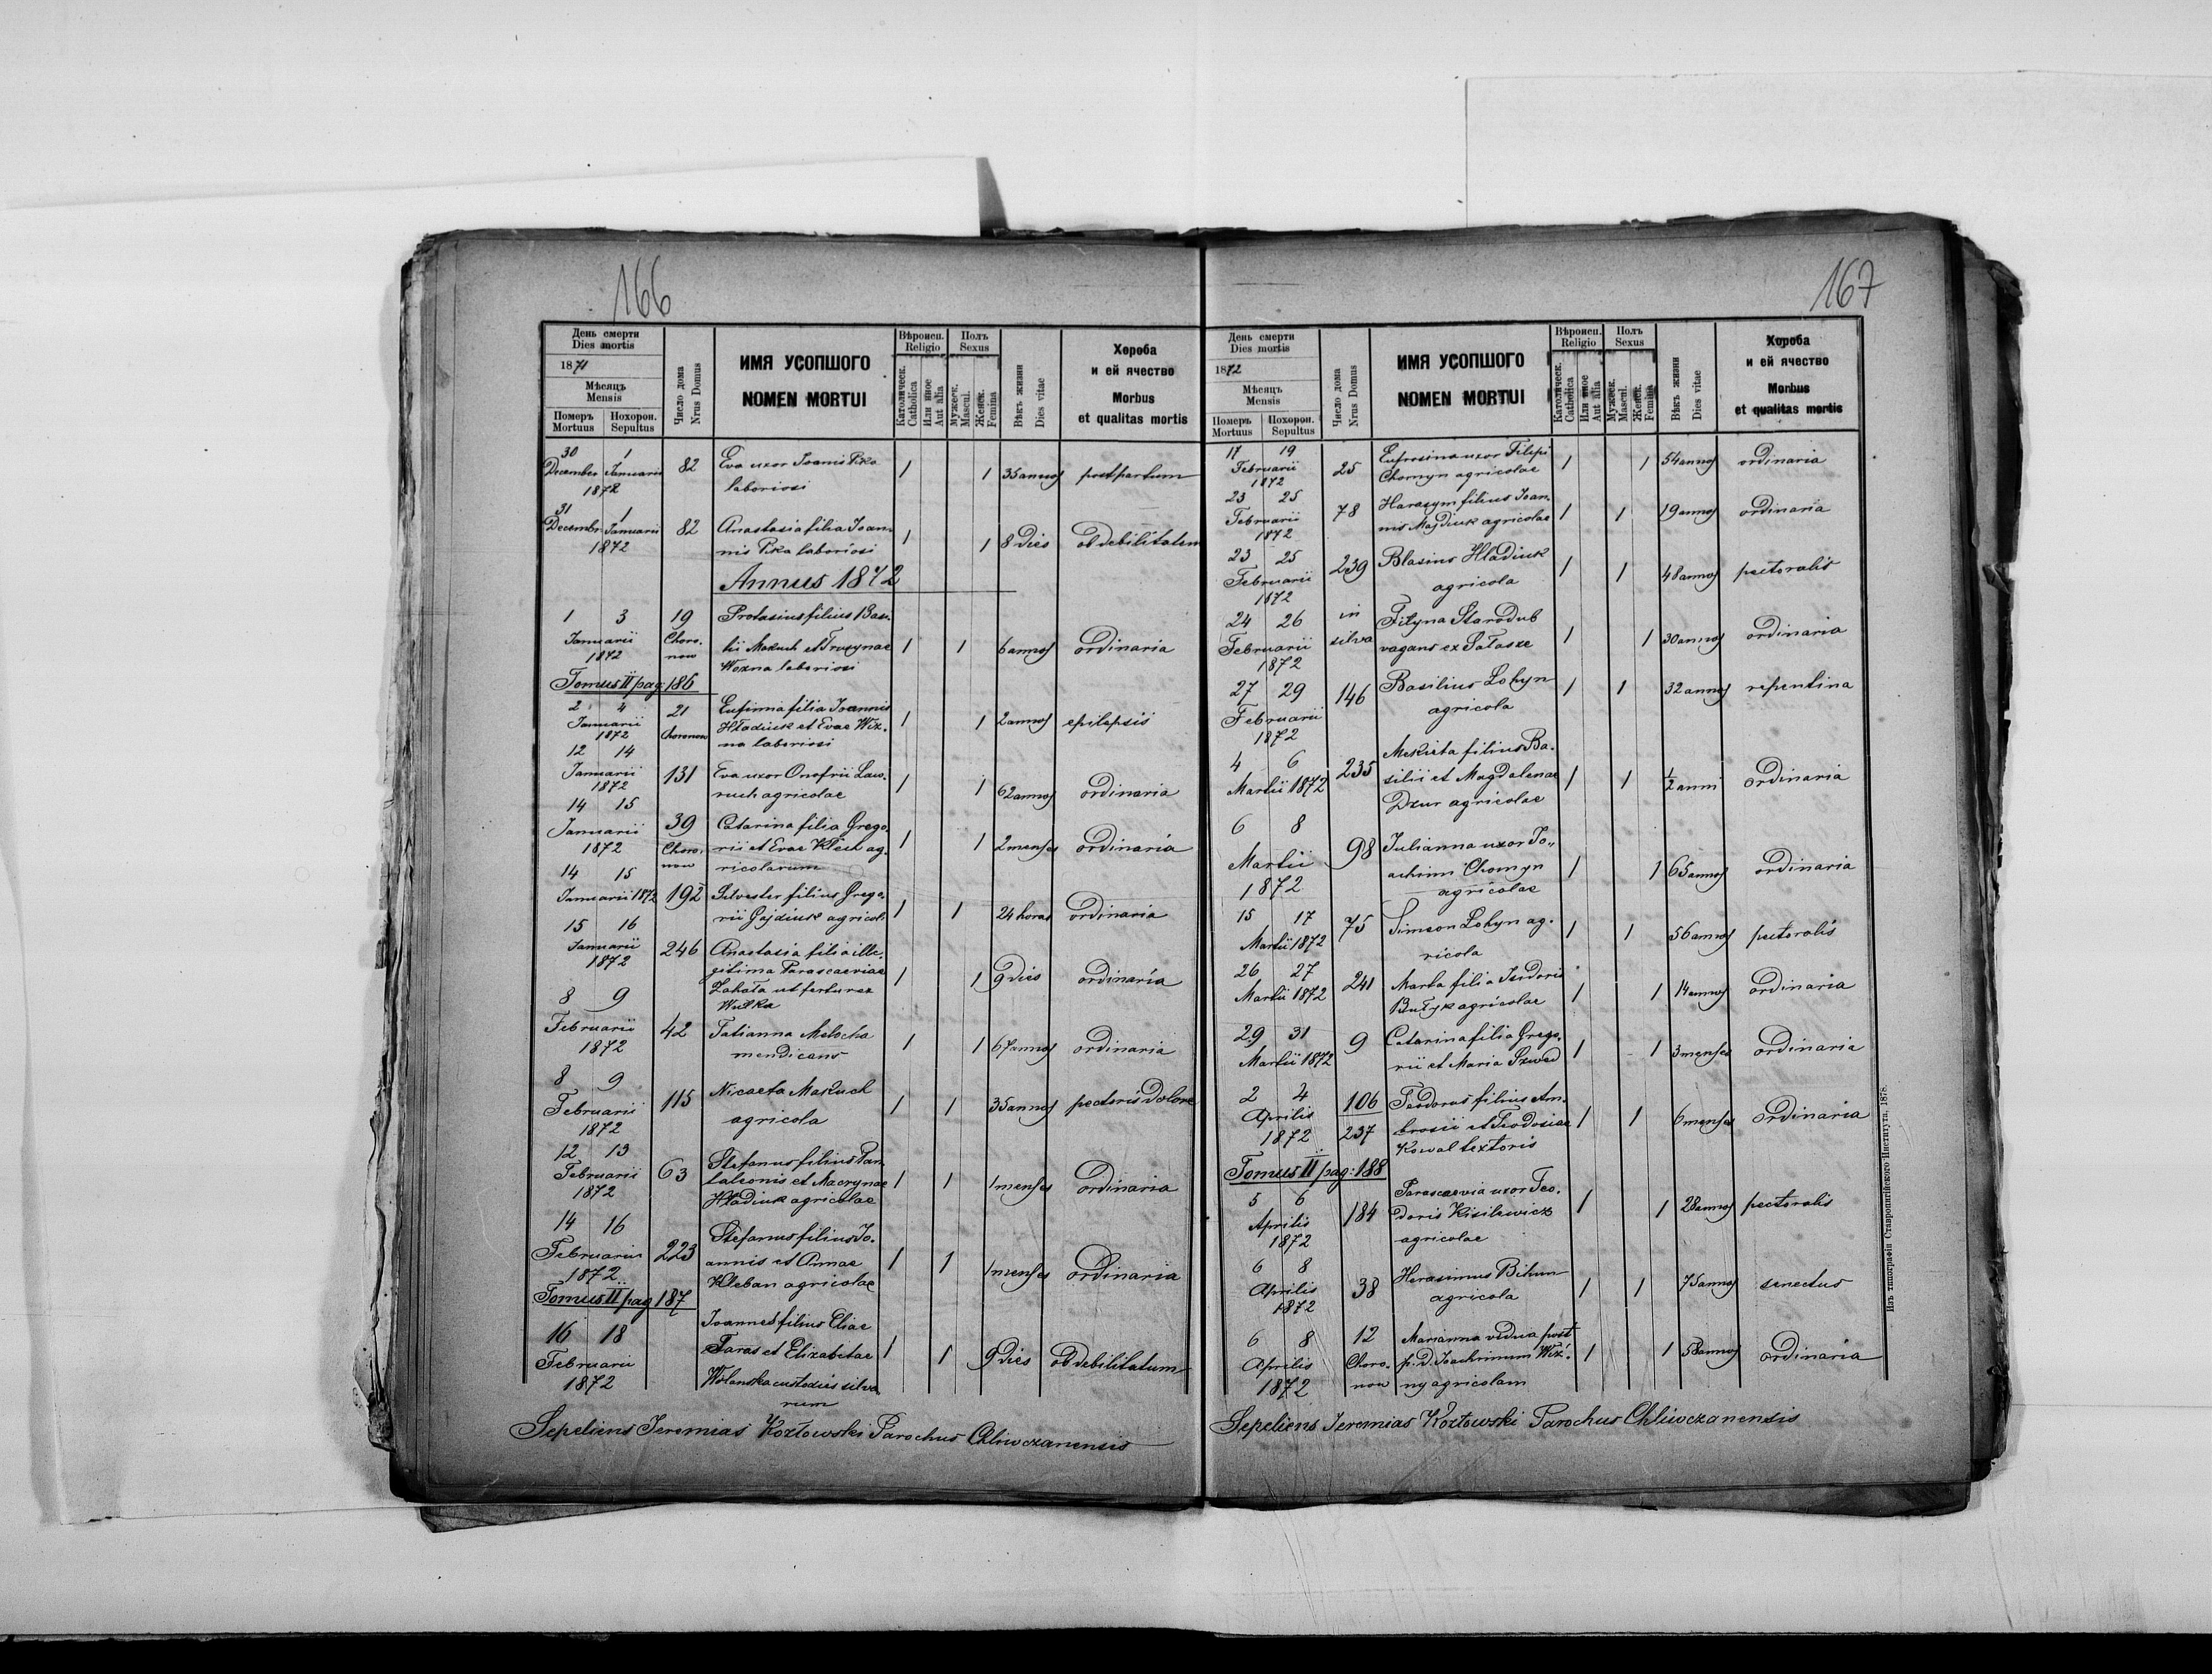 166
День смерти
Dies mortis
1871
Мѣсяцъ
Mensis
Померъ
Mortuus
Похорон.
Sepultus
Число дома
Nrus Domus
ИМЯ УСОПШОГО
NOMEN MORTUI
Вѣроисп.
Religio
Католическ.
Catholica
Или иное
Aut alia
Полъ
Sexus
Мужеск.
Mascul.
Женск.
Femina
Вѣкъ жизни
Dies vitae
Хороба
и ей ячество
Morbus
et qualitas mortis
30 1
December Januarii 82 Eva uxor Joanis Pika 1 1 35 annos post partum
1872 laboriosi
31 1
Decembr Januarii 82 Anastasia filia Joan- 1 1 8 dies ob debilitatem
1872 nis Pika laboriosi
Annus 1872
1 3 19 Protasius filius Basi-
Januarii Choro- lii Makuch et Fruzynae 1 1 6 annos ordinaria
1872 now Wozna laboriosi
Tomus II pag: 186
2 4 21 Eufinna filia Joannis
Januarii Chronow Hładiuk et Evae Wiz- 1 1 2 annos epilepsis
1872 na laboriosi
12 14
Januarii 131 Eva uxor Onofrii Law- 1 1 62 annos ordinaria
1872 ruch agricolae
14 15 39 Catarina filia Grego-
Januarii Choro- rii et Evae Klech ag- 1 1 2 menses ordinaria
1872 now ricolarum
14 15
Januarii 1872 192 Silvester filius Grego- 1 1 24 horas ordinaria
rii Gajdiuk agricol.
15 16
Januarii 246 Anastasia filia ille-
1872 gitima Parascaeviae 1 1 9 dies ordinaria
Zahata ut fertur ex
Wulka
8 9
Februarii 42 Tatianna Melocha 1 1 67 annos ordinaria
1872 mendicans
8 9
Februarii 115 Nicaeta Makuch 1 1 35 annos pectoris dolore
1872 agricola
12 13
Februarii 63 Stefanus filius Pan-
1872 taleonis et Macrynae 1 1 1 menses ordinaria
Hładiuk agricolae
14 16
Februarii 223 Stefanus filius Jo-
1872 annis et Annae 1 1 1 menses ordinaria
Kleban agricolae
Tomus II pag 187
16 18 Joannes filius Eliae
Februarii Taras et Elizabetae 1 1 9 dies ob debilitatum
1872 Wolanska custodis silva-
rum
Sepeliens Jeremias Kozłowski Parochus Chliwczanensis
167
День смерти
Dies mortis
1872
Мѣсяцъ
Mensis
Померъ
Mortuus
Похорон.
Sepultus
Число дома
Nrus Domus
ИМЯ УСОПШОГО
NOMEN MORTUI
Вѣроисп.
Religio
Католическ.
Catholica
Или иное
Aut alia
Полъ
Sexus
Мужеск.
Mascul.
Женск.
Femina
Вѣкъ жизни
Dies vitae
Хороба
и ей ячество
Morbus
et qualitas mortis
17 19
Februarii 25 Eufrosina uxor Filipi 1 1 54 annos ordinaria
1872 Chomyn agricolae
23 25
Februarii 78 Harasym filius Joan- 1 1 19 annos ordinaria
1872 nis Majdiuk agricolae
23 25
Februarii 239 Blasius Hładiuk 1 1 48 annos pectoralis
1872 agricola
24 26 in Fityna Starodub
Februarii silva vagans ex Sałasze 1 1 30 annos ordinaria
1872
27 29 146 Basilius Lohyn 1 1 32 annos repentina
Februarii agricola
1872
4 6 235 Mekieta filius Ba-
Martii 1872 silii et Magdalenae 1 1 1/2 anni ordinaria
Dzur agricolae
6 8
Martii 98 Julianna uxor Jo-
1872 achimi Chomyn 1 1 65 annos ordinaria
agricolae
15 17
Martii 1872 75 Simeon Lohyn ag- 1 1 56 annos pectoralis
ricola
26 27
Martii 1872 241 Marta filia Isidoris 1 1 14 annos ordinaria
Bułyk agricolae
29 31
Martii 1872 9 Catarina filia Grego- 1 1 3 menses ordinaria
rii et Maria Szwed
2 4 106 Teodorus filius Am-
Aprilis brosii et Teodosiae 1 1 6 menses ordinaria
1872 237 Kowal textoris
Tomus II pag: 188
5 6
Aprilis 184 Parascaevia uxor Teo- 1 1 28 annos pectoralis
1872 doris Kisilewicz
agricolae
6 8
Aprilis 38 Herasimus Bihun 1 1 75 annos senectus
1872 agricola
6 8 12 Marianna vidua post
Aprilis Choro- p. d. Joachimum Wiz- 1 1 58 annos ordinaria
1872 now ny agricolam
Sepeliens Jeremias Kozłowski Parochus Chliwczanensis
Изъ типографіи Ставропигійского Института. 1878.